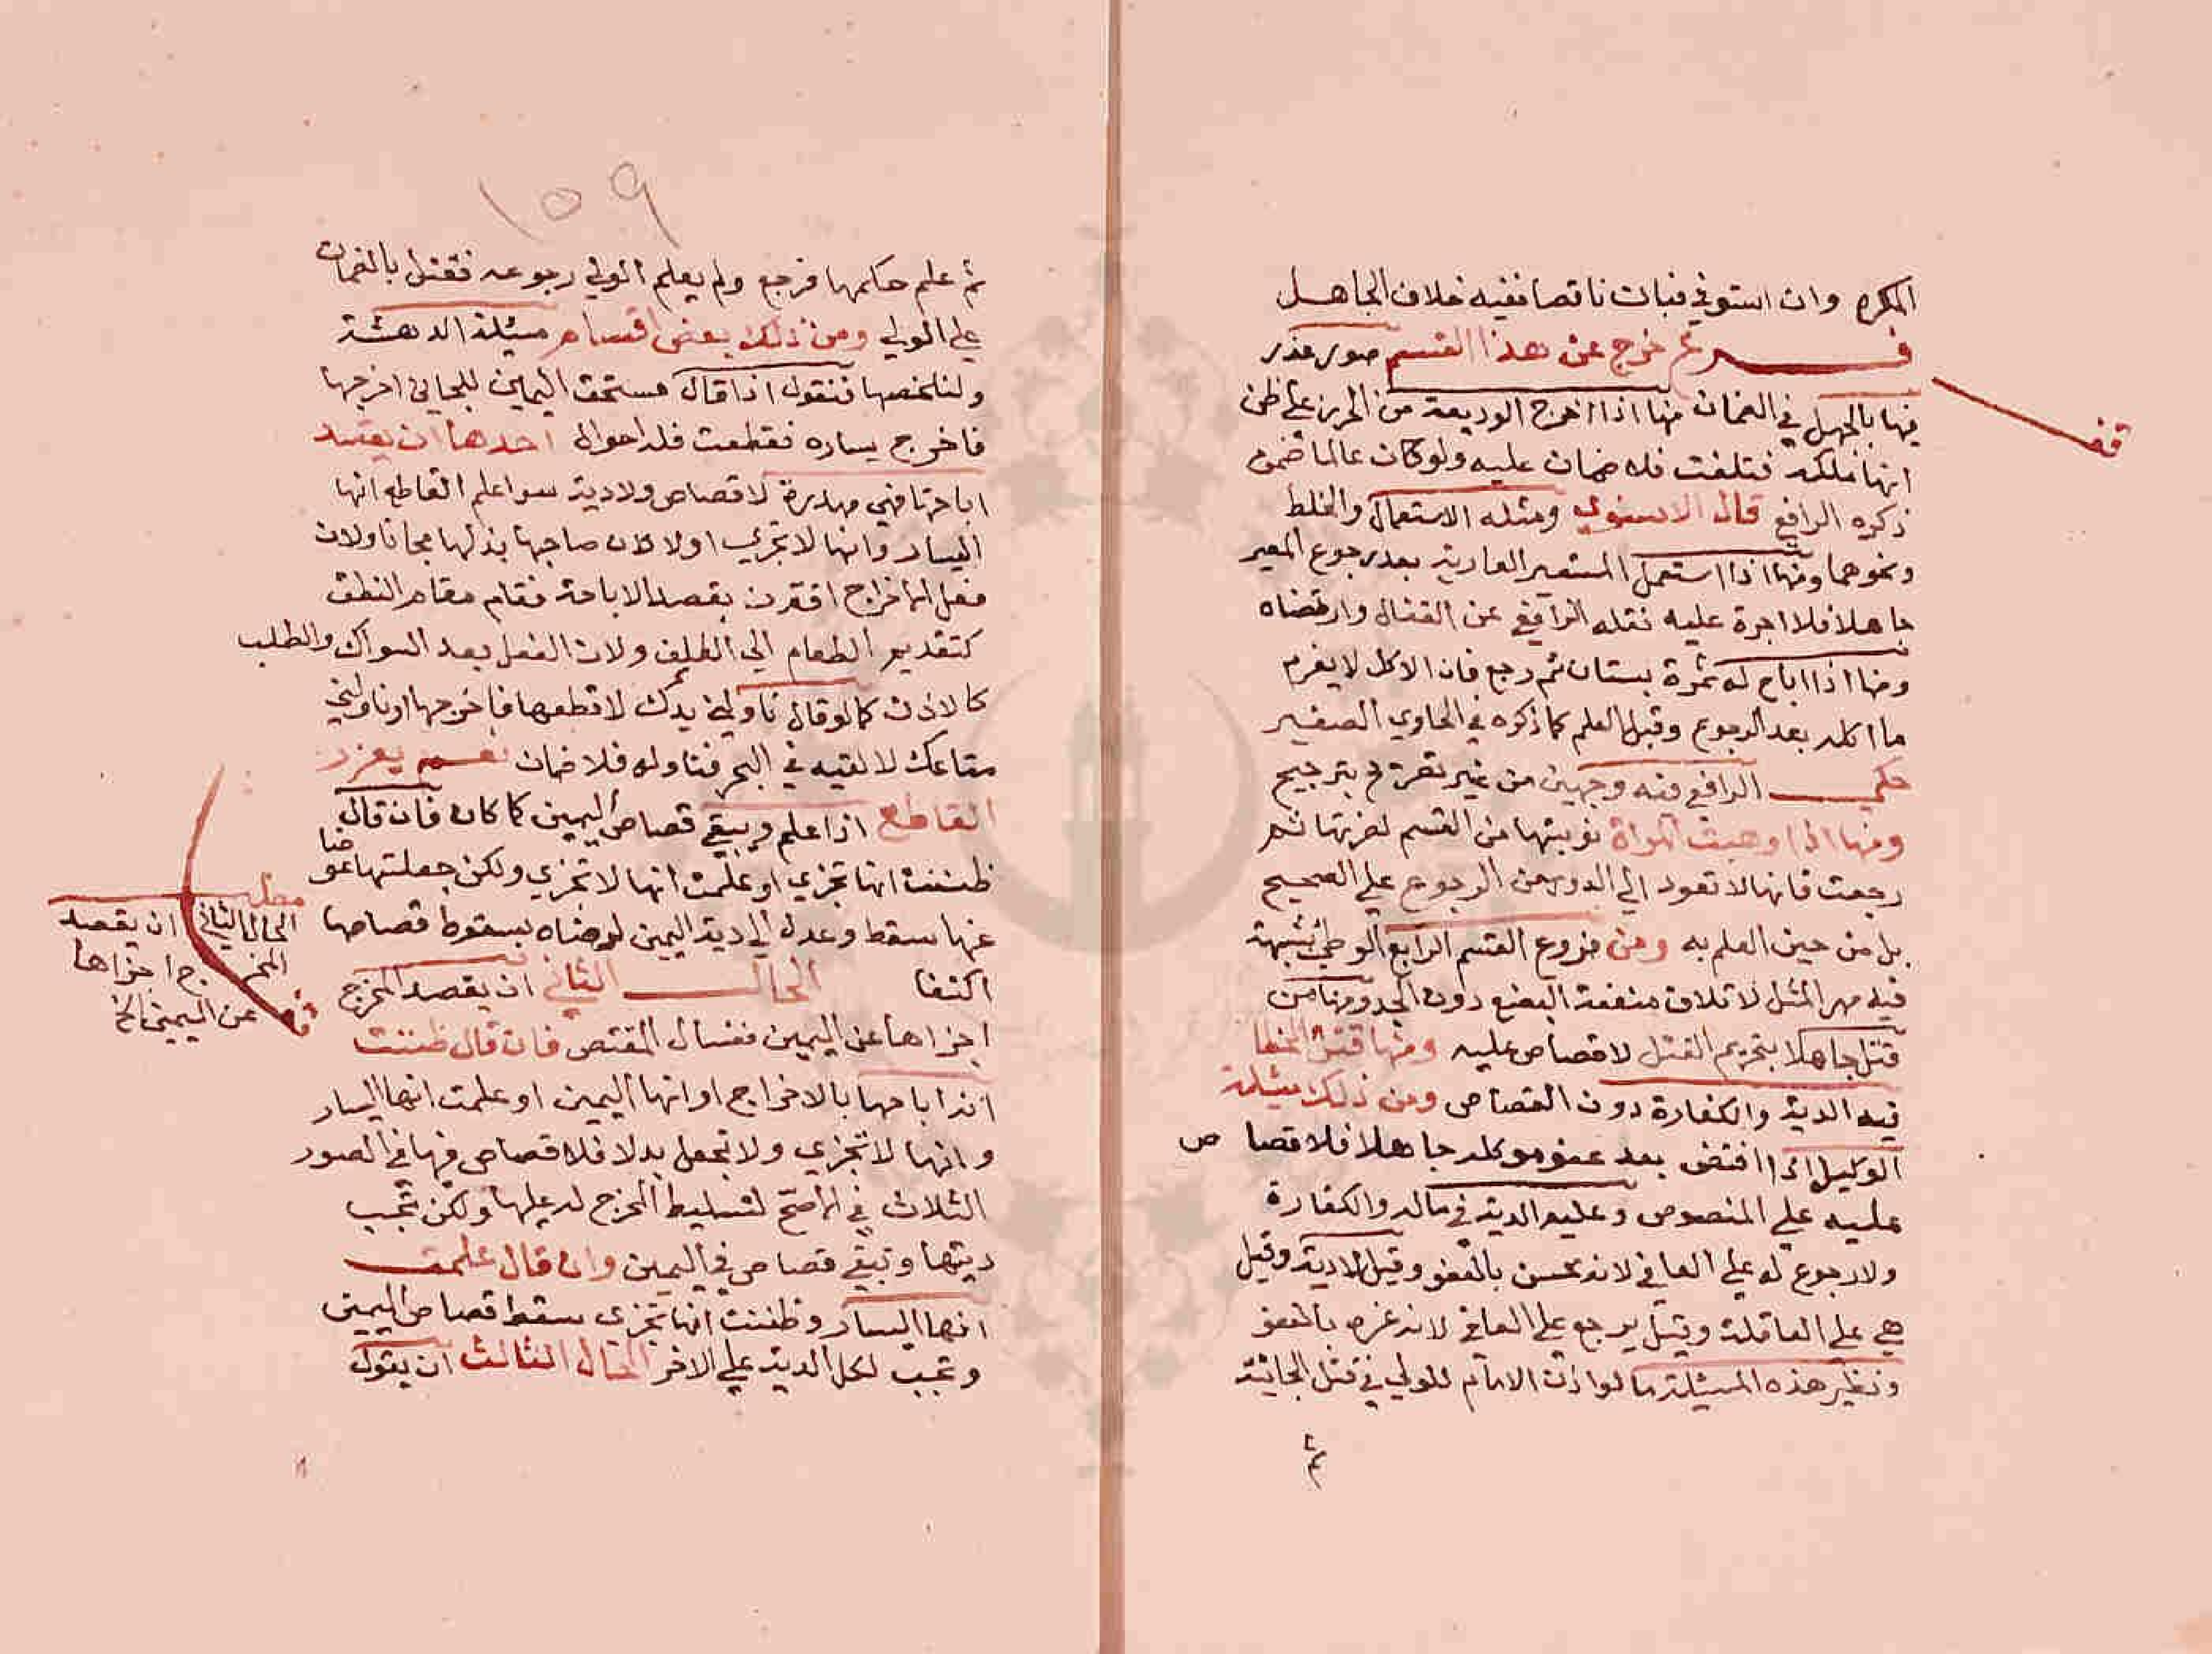 المكره وان استوفي فبان ناقصا ففيه خلاف الجاهل
فرع خرج عن هذا القسم صور عذر
فيها بالجهل في الضمان منها اذا اخرج الوديعة من الحرز علي ظن
انها ملكه فتلفت فلا ضمان عليه ولو كان عالما ضمن
ذكره الرافعي قال الاسنوي ومثله الاستعمال والخلط
ونحوهما ومنها اذا استعمل المستعير العارية بعد رجوع المعير
جاهلا فلا اجرة عليه نقله الرافعي عن القفال وارتضاه
ومنها اذا اباح له ثمرة بستان ثم رجع فان الاكل لا يغرم
ما اكله بعد الرجوع وقبل العلم كما ذكره في الحاوي الصغير
حكي الرافعي فيه وجهين من غير تصريح بترجيح
ومنها اذا وهبت المراة نوبتها من القسم لضرتها ثم
رجعت فانها لا تعود الي الدور من الرجوع علي الصحيح
بل من حين العلم به ومن فروع القسم الرابع الوطي بشبهة
فيه مهر المثل لاتلاف منفعة البضع دون الحد ومنها من
قتل جاهلا بتحريم القتل لا قصاص عليه ومنها قتل الخطا
فيه الدية والكفارة دون القصاص ومن ذلك مسئلة
الوكيل اذا اقتص بعد عفو موكله جاهلا فلا قصا ص
عليه علي المنصوص وعليه الدية في ماله والكفارة
ولا رجوع له علي العافي لانه محسن بالعفو وقيل لا دية وقيل
هي علي العاقلة وقيل يرجع علي العافي لانه غره بالعفو
ونظير هذه المسئلة ما لو اذن الامام للولي في قتل الجانية
ثم
١٥٩
ثم علم حكمها فرجع ولم يعلم الولي رجوعه فقتل بالضمان
علي الولي ومن ذلك بعض اقسام مسئلة الدهشة
ولنلخصها فنقول اذا قال مستحق اليمين للجاني اخرجها
فاخرج يساره فقطعت فله احوال احدها ان يقصد
اباحتها فهي مهدرة لا قصاص ولا دية سوا علم القاطع انها
اليسار وانها لا تجزي اولا لان صاحبها بذلها مجانا ولان
فعل الاخراج اقترن بقصد الاباحة فقام مقام النطق
كتقديم الطعام الي الضيف ولان الفعل بعد السواك والطلب
كالاذن كما لو قال ناولني يدك لاقطعها فاخرجها او ناولني
متاعك لالقيه في البحر فناوله فلا ضمان نعم يعزر
القاطع اذا علم ويبقي قصاص اليمين كما كان فان قال
ظننت انها تجزي او علمت انها لا تجزي ولكن جعلتها عوضا
عنها سقط وعدل الي دية اليمين لرضاه بسقوط قصاصها
اكتفا الحال الثاني ان يقصد المخرج
اجزاها عن اليمين فيسال المقتص فان قال ظننت
انه اباحها بالاخراج او انها اليمين او علمت انها اليسار
وانها لا تجزي ولا تجعل بدلا فلا قصاص فيها في الصور
الثلاث في الاصح لتسليط المخرج له عليها ولكن تجب
ديتها وتبقي قصاص في اليمين وان قال علمت
انها اليسار وظننت انها تجزي سقط قصاص اليمين
وتجب لكل الدية علي الاخر الحال الثالث ان يقول
مطلب
الحال الثاني ان يقصد
المخرج اجزاها
عن اليمين الخ